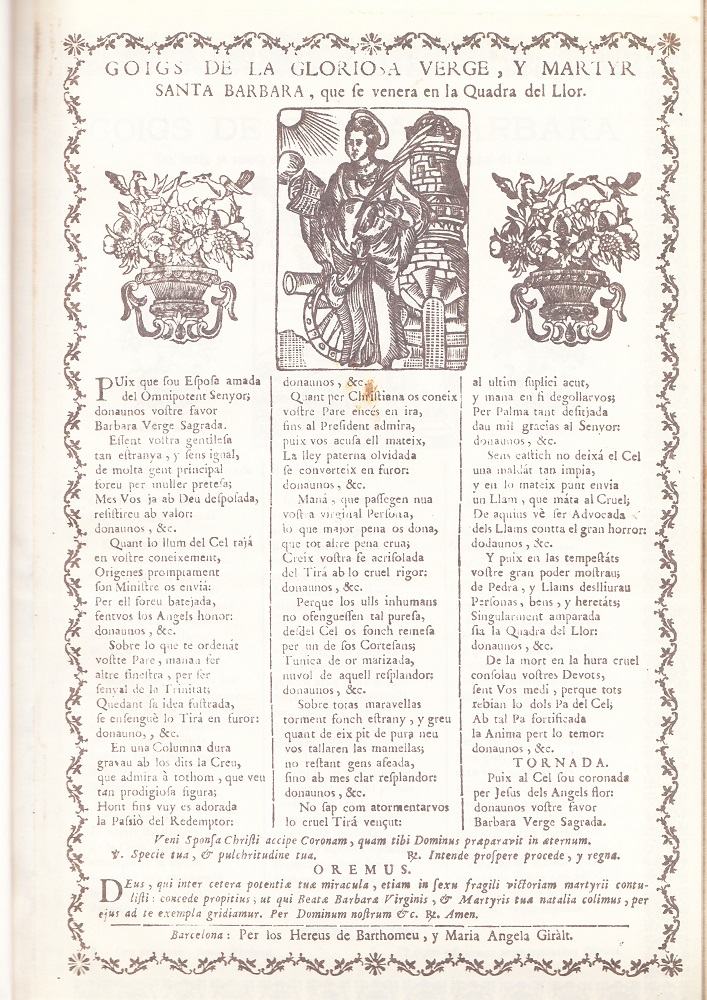 GOIGS DE LA GLORIOSA VERGE, Y MARTYR
SANTA BARBARA, que ſe venera en la Quadra del Llor.
PUix que ſou Eſpoſa amada
del Omnipotent Senyor;
donaunos voſtre favor
Barbara Verge Sagrada.
Eſſent voſtra gentileſa
tan eſtranya, y ſens igual,
de molta gent principal
foreu per muller preteſa;
Mes Vos ja ab Deu deſpoſada,
reſiſtireu ab valor:
donaunos, &c.
Quant lo llum del Cel rajá
en voſtre coneixement,
Origenes promptament
ſon Miniſtre os enviá:
Per ell foreu batejada,
fentvos los Angels honor:
donaunos, &c.
Sobre lo que te ordenát
voſtte Pare, manau fer
altre fineſtra, per ſer
ſenyal de la Trinitat;
Quedant ſa idea fuſtrada,
ſe enſengué lo Tirá en furor:
donauno,, &c.
En una Columna dura
gravau ab los dits la Creu,
que admira à tothom, que veu
tan prodigioſa figura;
Hont fins vuy es adorada
la Paſsiò del Redemptor:
donaunos, &c.
Quant per Chriſtiana os coneix
voſtre Pare encés en ira,
fins al Preſident admira,
puix vos acuſa ell mateix,
La lley paterna olvidada
ſe converteix en furor:
donaunos, &c.
Maná, que paſſegen nua
voſtra virginal Perſona,
lo que major pena os dona,
que tot altre pena crua;
Creix voſtra ſe acriſolada
del Tirá ab lo cruel rigor:
donaunos, &c.
Perque los ulls inhumans
no ofengueſſen tal pureſa,
deſdel Cel os fonch remeſa
per un de ſos Corteſans;
Tunica de or matizada,
nuvol de aquell reſplandor:
donaunos, &c.
Sobre totas maravellas
torment fonch eſtrany, y greu
quant de eix pit de pura neu
vos tallaren las mamellas;
no reſtant gens afeada,
ſino ab mes clar reſplandor:
donaunos, &c.
No ſap com atormentarvos
lo cruel Tirá vençut:
al ultim ſuplici acut,
y mana en fi degollarvos;
Per Palma tant deſitjada
dau mil gracias al Senyor:
donaunos, &c.
Sens caſtich no deixá el Cel
una maldát tan impia,
y en lo mateix punt envia
un Llam, que máta al Cruel;
De aquius vè ſer Advocada
dels Llams contta el gran horror:
dodaunos, &c.
Y puix en las tempeſtáts
voſtre gran poder moſtrau;
de Pedra, y Llams deslliurau
Perſonas, bens, y heretáts;
Singularment amparada
ſia la Quadra del Llor:
donaunos, &c.
De la mort en la hura cruel
conſolau voſtres Devots,
ſent Vos medi, perque tots
rebian lo dols Pa del Cel;
Ab tal Pa fortificada
la Anima pert lo temor:
donaunos, &c.
TORNADA.
Puix al Cel ſou coronada
per Jeſus dels Angels flor:
donaunos voſtre favor
Barbara Verge Sagrada.
Veni Sponſa Chriſti accipe Coronam, quam tibi Dominus præparavit in æternum.
℣. Specie tua, & pulchritudine tua. ℟. Intende proſpere procede, y regna.
OREMUS.
DEus, qui inter cetera potentiæ tuæ miracula, etiam in ſexu fragili victoriam martyrii contu-
liſti: concede propitius, ut qui Beatæ Barbaræ Virginis, & Martyris tuæ natalia colimus, per
ejus ad te exempla gridiamur. Per Dominum noſtrum &c. ℟. Amen.
Barcelona: Per los Hereus de Barthomeu, y Maria Angela Giràlt.